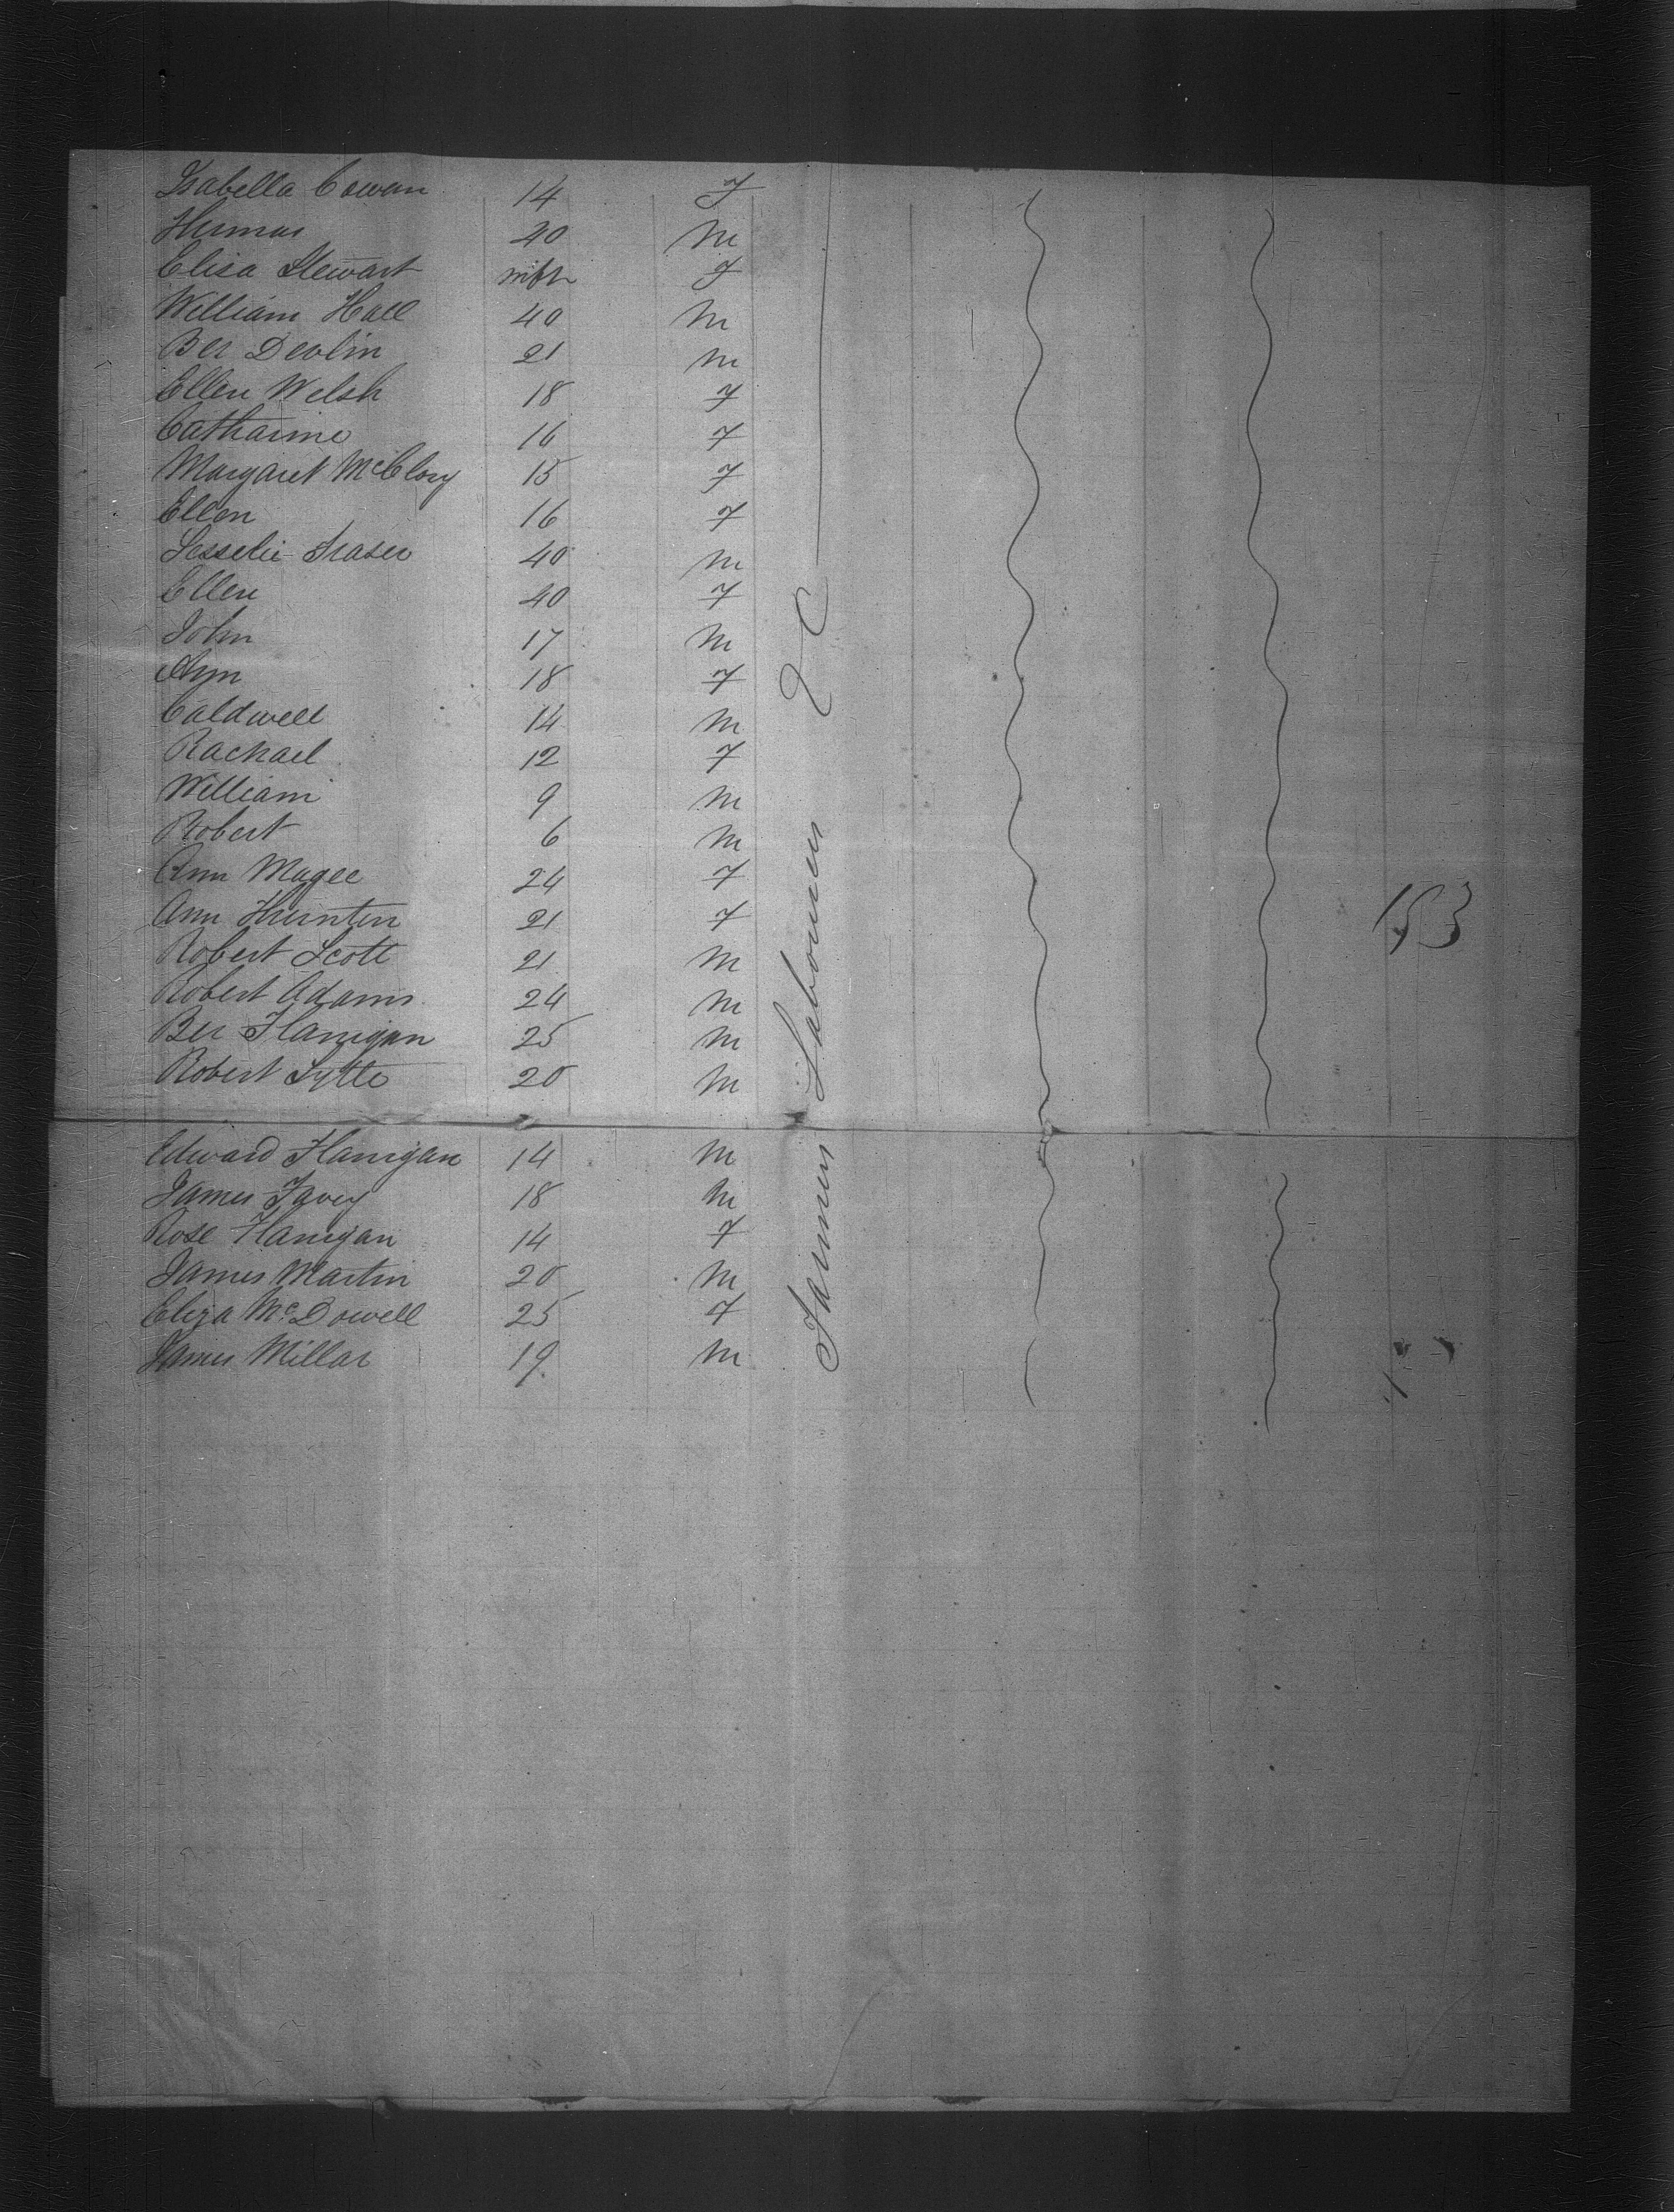 Isabella Cowan 14 F
Thomas 40 M
Elisa Stewart infn F
William Hall 40 M
Ber Devlin 21 M
Ellen Welsh 18 F
Catharine 16 F
Margaret McClory 15 F
Ellen 16 F
Lesselie Fraser 40 M
Ellen 40 F
John 17 M
Ann 18 F
Caldwell 14 M
Rachael 12 F
William 9 M
Robert 6 M
Ann Magee 24 F
Ann Hunter 21 F
Robert Scott 21 M
Robert Adams 24 M
Ber Flanigan 25 M
Robert Lytle 20 M
Edward Flanigan 14 M
James Favey 18 M
Rose Flanigan 14 F
James Martin 20 M
Eliza McDowell 25 F
James Millar 19 M
Farmers Labourers &C
153